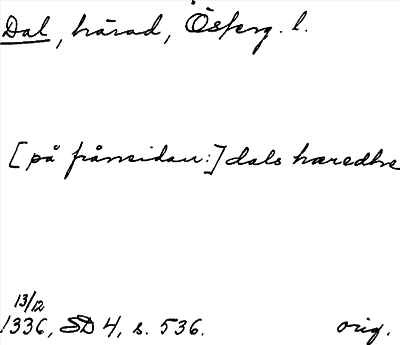 Dal, härad, Österg. l.
[på frånsidan:] dals hæredhe
13/12
1336, SD 4, s. 536. orig.